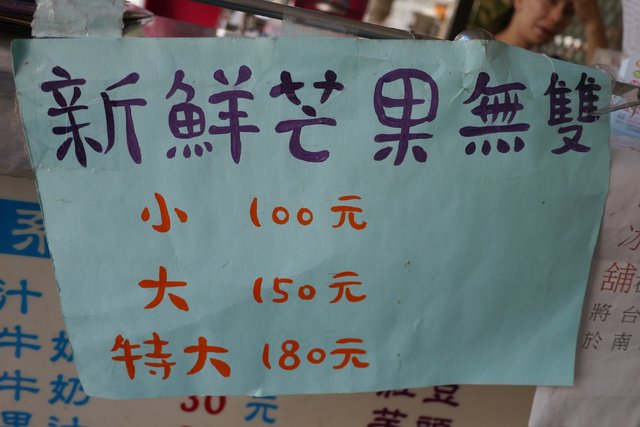 新鮮芒果無雙
小 100元
大 150元
特大 180元
系
汁
牛奶
牛奶
30元
冰
舖
將台
於南